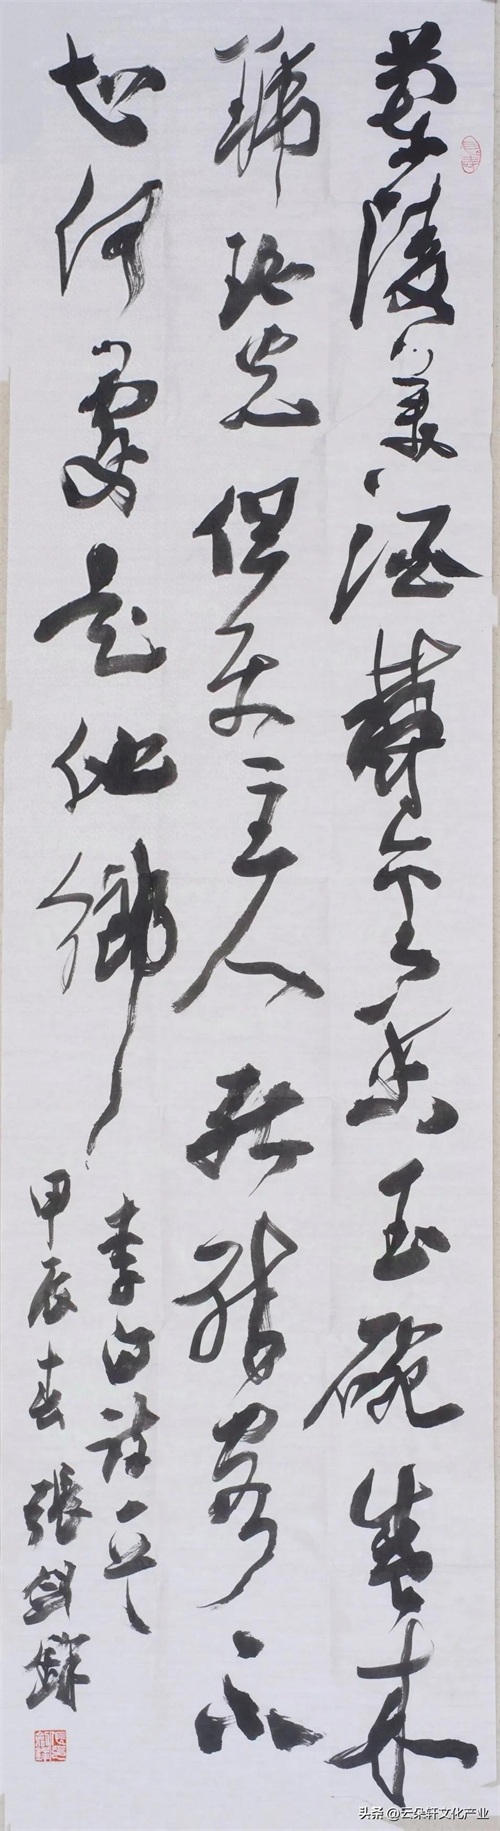 蘭陵美酒鬱金香玉碗盛来
琥珀光但使主人能醉客不
知何處是他鄉
李白詩一首
甲辰春張劍
头条@云朵轩文化产业